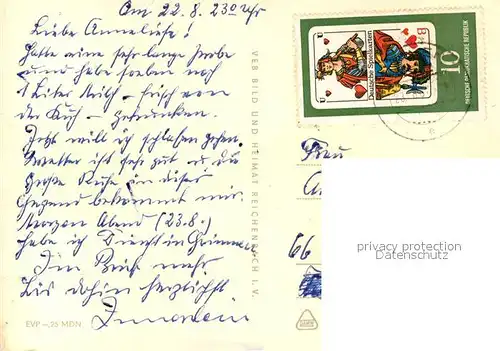 Am 22.8. 23⁰⁰ Uhr
Liebe Anneliese!
Hatte eine sehr lange Probe
und habe soeben noch
1 Liter Milch – frisch von
der Kuh – getrunken.
Jetzt will ich schlafen gehen.
Wetter ist sehr gut u. die
große Ruhe in dieser
Gegend bekommt mir.
Morgen Abend (23.8.)
habe ich Dienst in
Im Brief mehr.
Bis dahin herzlichst
EVP –,25 MDN
VEB BILD UND HEIMAT REICHENBACH I. V.
U
B
Deutsche Spielkarten
10
DEUTSCHE DEMOKRATISCHE REPUBLIK
Frau
66
privacy protection
Datenschutz